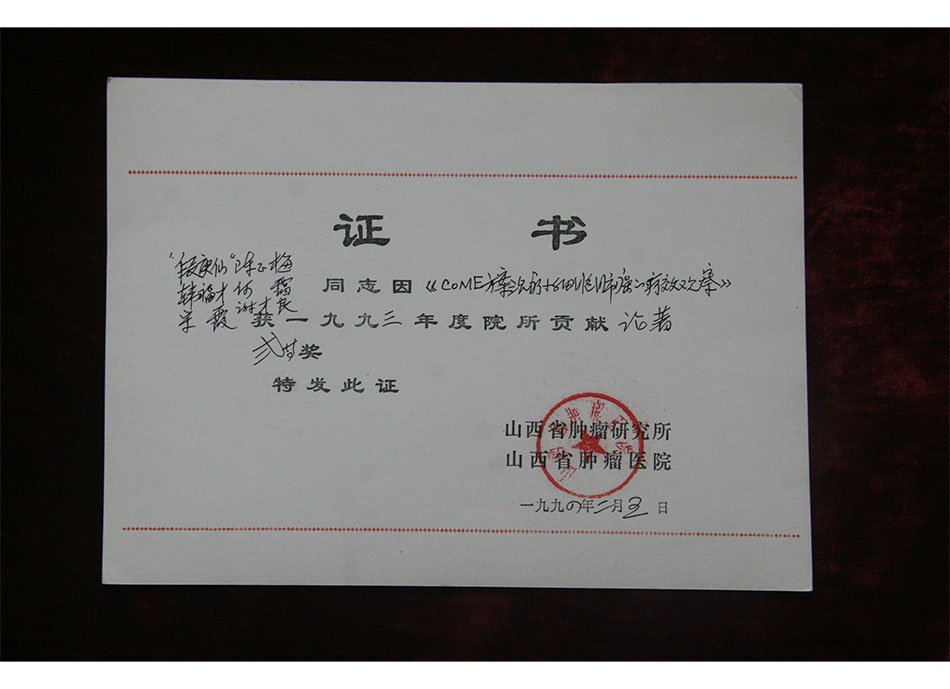 证 书
陈正梅
韩福才 何
谢才良
同志因《COME方案治疗小细胞肺癌疗效观察》
宋霞 获一九九三年度院所贡献论著
弍等奖
特发此证
山西省肿瘤研究所
山西省肿瘤医院
一九九四年二月 日